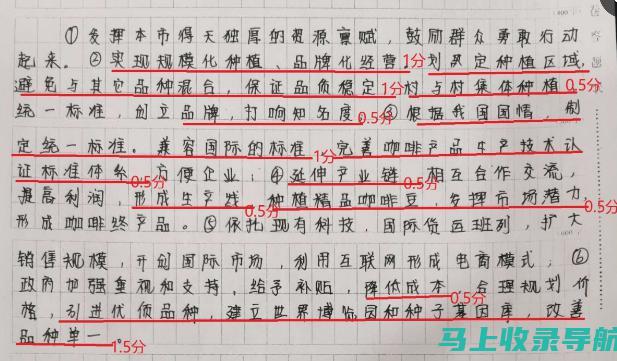 ①发挥本市得天独厚的资源禀赋,鼓励群众勇敢行动
起来。②实现规模化种植、品牌化经营1分划界定种植区域,
避免与其它品种混合,保证品质稳定1分村与村集体种植0.5分
统一标准,创立品牌,打响知名度。0.5分③根据我国国情,制
定统一标准。兼容国际的标准1分完善咖啡产品生产技术认
证标准体系0.5分方便企业;④延伸产业链0.5分相互合作交流,
提高利润,形成生产线0.5分种植精品咖啡豆,发挥市场潜力0.5分
形成咖啡终产品。⑤依托现有科技,国际货运班列,扩大
销售规模,开创国际市场,利用互联网形成电商模式;⑥
政府加强重视和支持,给予补贴,降低成本0.5分合理规划价
格,引进优质品种,建立世界博览园和种子基因库,改善
品种单一。1.5分
马上收录导航